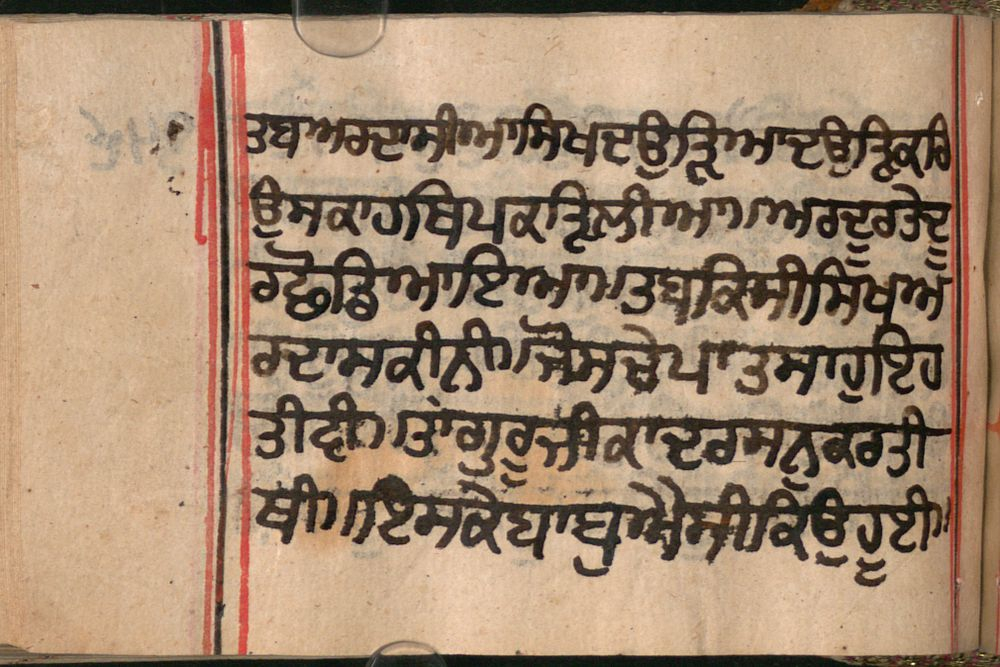 ਤਬਅਰਦਾਸੀਆਸਿਖਦਉੜਿਆਦਉੜਿਕਰਿ
ਉਸਕਾਹਥਿਪਕੜਿਲੀਆ॥ਅਰਦੂਰਤੇਦੂ
ਰਿਛੋਡਿਆਇਆ॥ਤਬਕਿਸੀਸਿਖਅ
ਰਦਾਸਕੀਨੀ॥ਜੋਸਚੇਪਾਤਸਾਹੁਇਹ
ਤੀਵੀ॥ਤਾਂਗੁਰੂਜੀਕਾਦਰਸਨੁਕਰਤੀ
ਥੀ॥ਇਸਕੇਬਾਬੁਐਸੀਕਿਉਹੂਈ॥